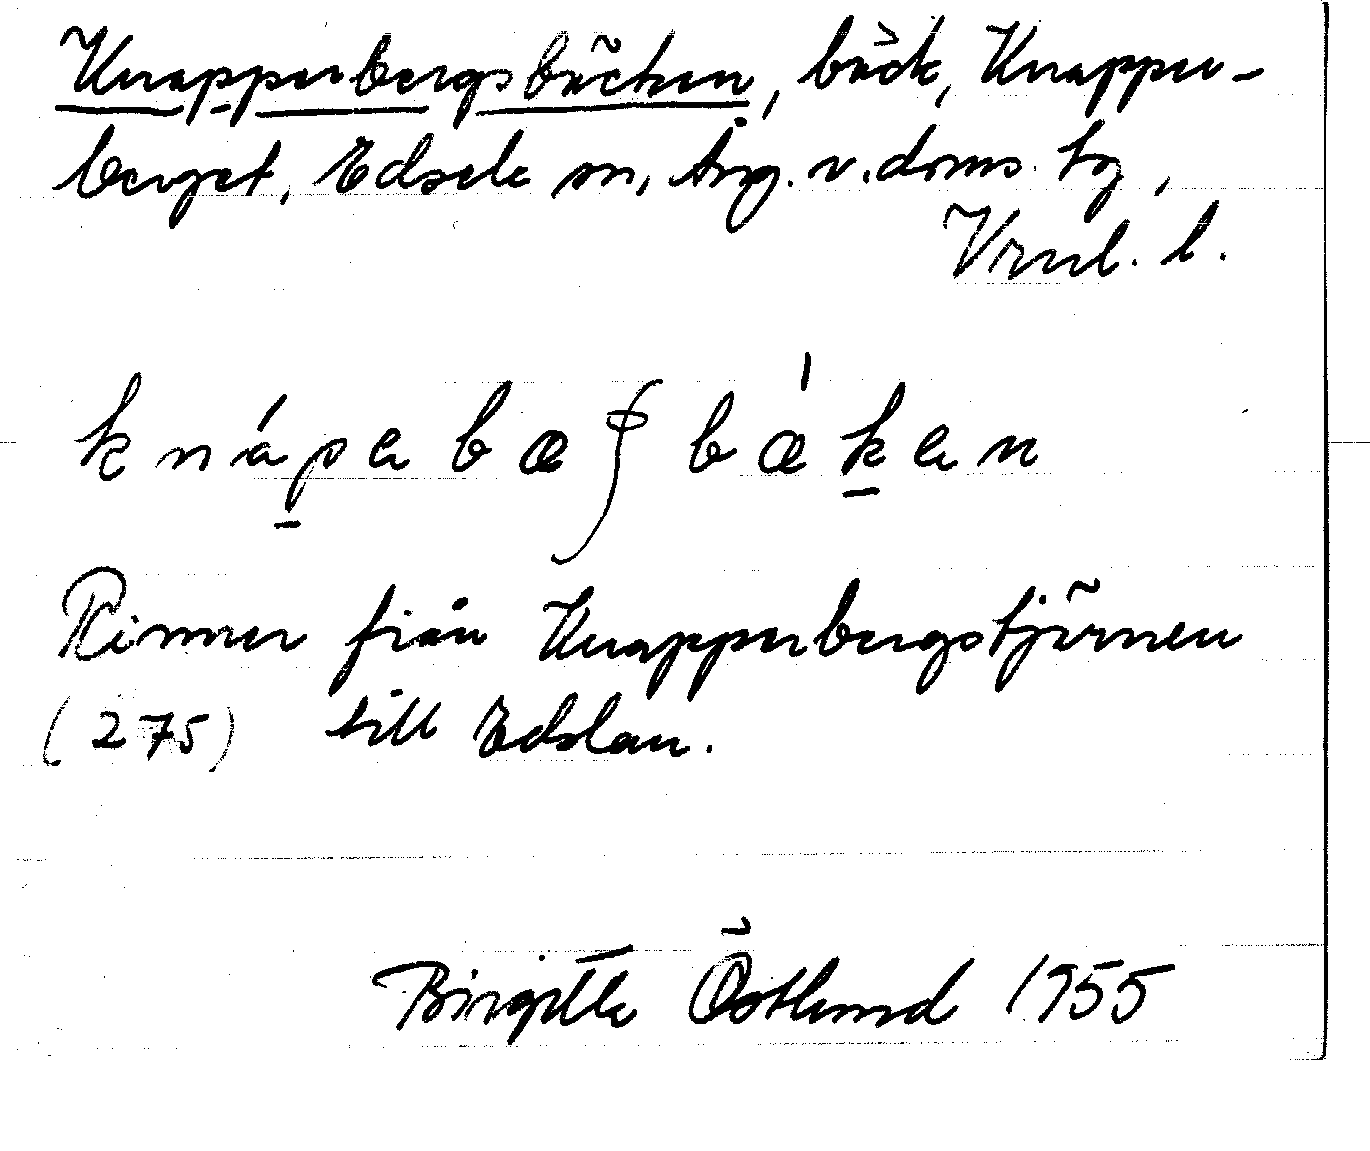 Knapperbergsbäcken, bäck, Knapper-
berget, Edsele sn, Ång. v. doms. tg,
Vrnl. l.
knápabæʃbǽkan
Rinner från Knapperbergstjärnen
(275) till Edslan.
Birgitta Östlund 1955